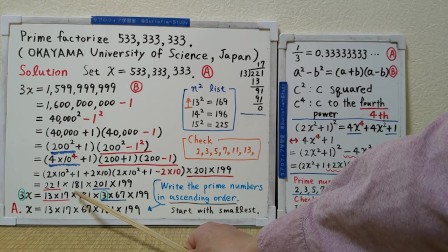 Prime factorize 533,333,333.
(OKAYAMA University of Science, Japan)
Solution Set x = 533,333,333. Ⓐ
3x = 1,599,999,999 Ⓑ
= 1,600,000,000 - 1
= 40,000² - 1²
= (40,000 + 1)(40,000 - 1)
= (200² + 1)(200² - 1²)
= (4 × 10⁴ + 1)(200 + 1)(200 - 1)
= (2×10² + 1 + 2×10)(2×10² + 1 - 2×10) × 201 × 199
= 221 × 181 × 201 × 199
3x = 13 × 17 × 3 × 67 × 199
A. x = 13 × 17 × 67 × 199
n² list
13² = 169
14² = 196
15² = 225
17
13)221
13
91
91
0
Check
2, 3, 5, 7, 11, 13,
Write the prime numbers
in ascending order.
Start with smallest.
1/3 = 0.33333333 ⋯ Ⓐ
a² - b² = (a + b)(a - b) Ⓑ
c² : c squared
c⁴ : c to the fourth
power 4th
(2x² + 1)² = 4x⁴ + 4x² + 1
⇔ 4x⁴ + 1
= (2x² + 1)² - 4x²
= (2x² + 1 + 2x)(2x²
Prime num
2, 3, 5, 7,